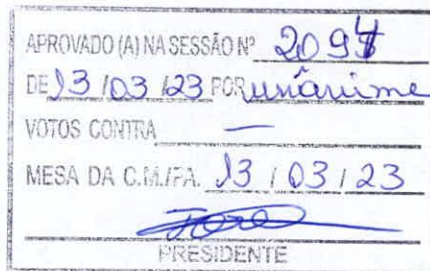 APROVADO (A) NA SESSÃO Nº 2094
DE 13/03/23 POR unânime
VOTOS CONTRA —
MESA DA C.M./P.A. 13/03/23
PRESIDENTE